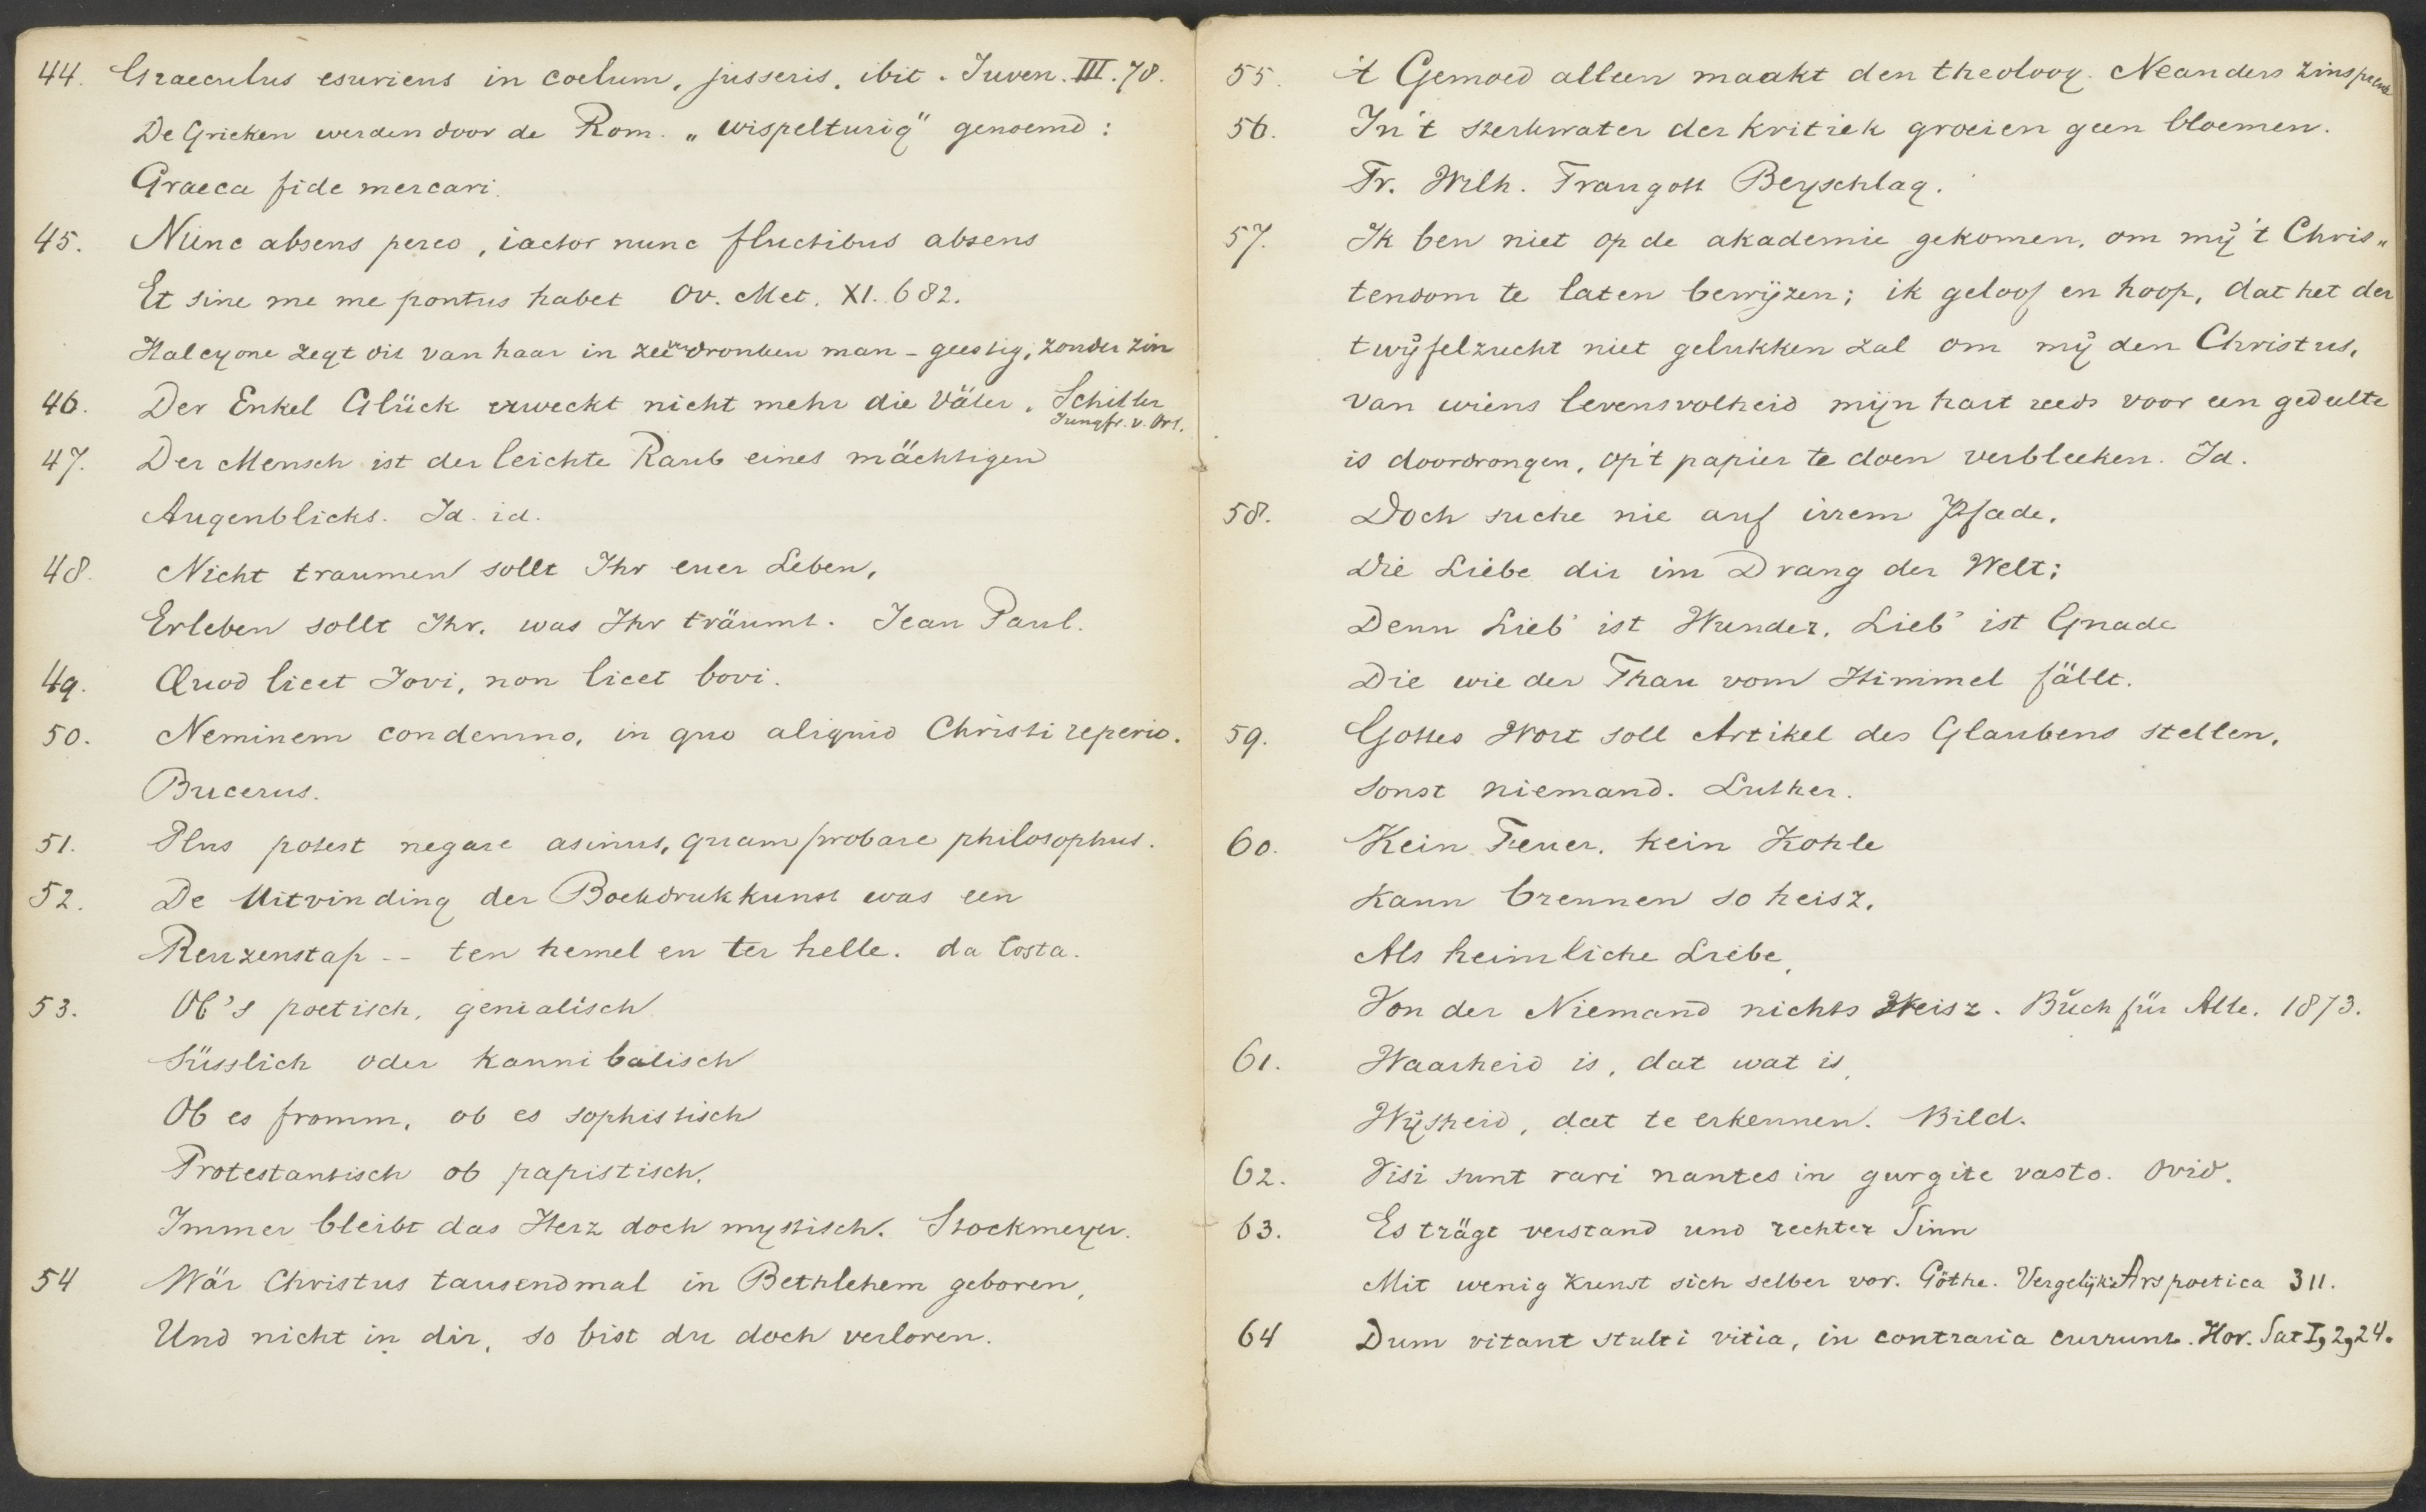 44. Graeculus esuriens in coelum, jusseris, ibit. Juven. III. 78.
De Grieken werden door de Rom. „wispelturig" genoemd:
Graeca fide mercari.
45. Nunc absens pereo, iactor nunc fluctibus absens
Et sine me me pontus habet Ov. Met. XI. 682.
Halcyone zegt dit van haar in zee verdronken man - geestig, zonder zin
46. Der Enkel Glück erweckt nicht mehr die Väter. Schiller
Jungfr. v. Orl.
47. Der Mensch ist der leichte Raub eines mächtigen
Augenblicks. Id. id.
48. Nicht traumen sollt Ihr euer Leben,
Erleben sollt Ihr, was Ihr träumt. Jean Paul.
49. Quod licet Jovi, non licet bovi.
50. Neminem condemno, in quo aliquid Christi reperio.
Bucerus.
51. Plus potest negare asinus, quam probare philosophus.
52. De Uitvinding der Boekdrukkunst was een
Reuzenstap -- ten hemel en ter helle. da Costa.
53. Ob's poetisch, genialisch
Süsslich oder kannibalisch
Ob es fromm, ob es sophistisch
Protestantisch ob papistisch,
Immer bleibt das Herz doch mystisch. Stockmeyer.
54 Wär Christus tausendmal in Bethlehem geboren,
Und nicht in dir, so bist du doch verloren.
55. 't Gemoed alleen maakt den theoloog. Neanders zinspreuk
56. In 't sterkwater der kritiek groeien geen bloemen.
Fr. Wilh. Traugott Beyschlag.
57. Ik ben niet op de akademie gekomen, om mij 't Chris„
tendom te laten bewijzen; ik geloof en hoop, dat het der
twijfelzucht niet gelukken zal om mij den Christus,
van wiens levensvolheid mijn hart reeds voor een gedeelte
is doordrongen, op 't papier te doen verbleeken. Id.
58. Doch suche nie auf irrem Pfade,
Die Liebe dir im Drang der Welt;
Denn Lieb' ist Wunder, Lieb' ist Gnade
Die wie der Thau vom Himmel fällt.
59. Gottes Wort soll Artikel des Glaubens stellen,
sonst niemand. Luther.
60. Kein Feuer, kein Kohle
Kann brennen so heisz,
Als heimliche Liebe,
Von der Niemand nichts Weisz. Buch für Alle. 1873.
61. Waarheid is, dat wat is,
Wijsheid, dat te erkennen. Bild.
62. Visi sunt rari nantes in gurgite vasto. Ovid.
63. Es trägt verstand und rechter Sinn
Mit wenig Kunst sich selber vor. Göthe. Vergelijk: Ars poetica 311.
64 Dum vitant stulti vitia, in contraria currunt. Hor. Sat I, 2, 24.